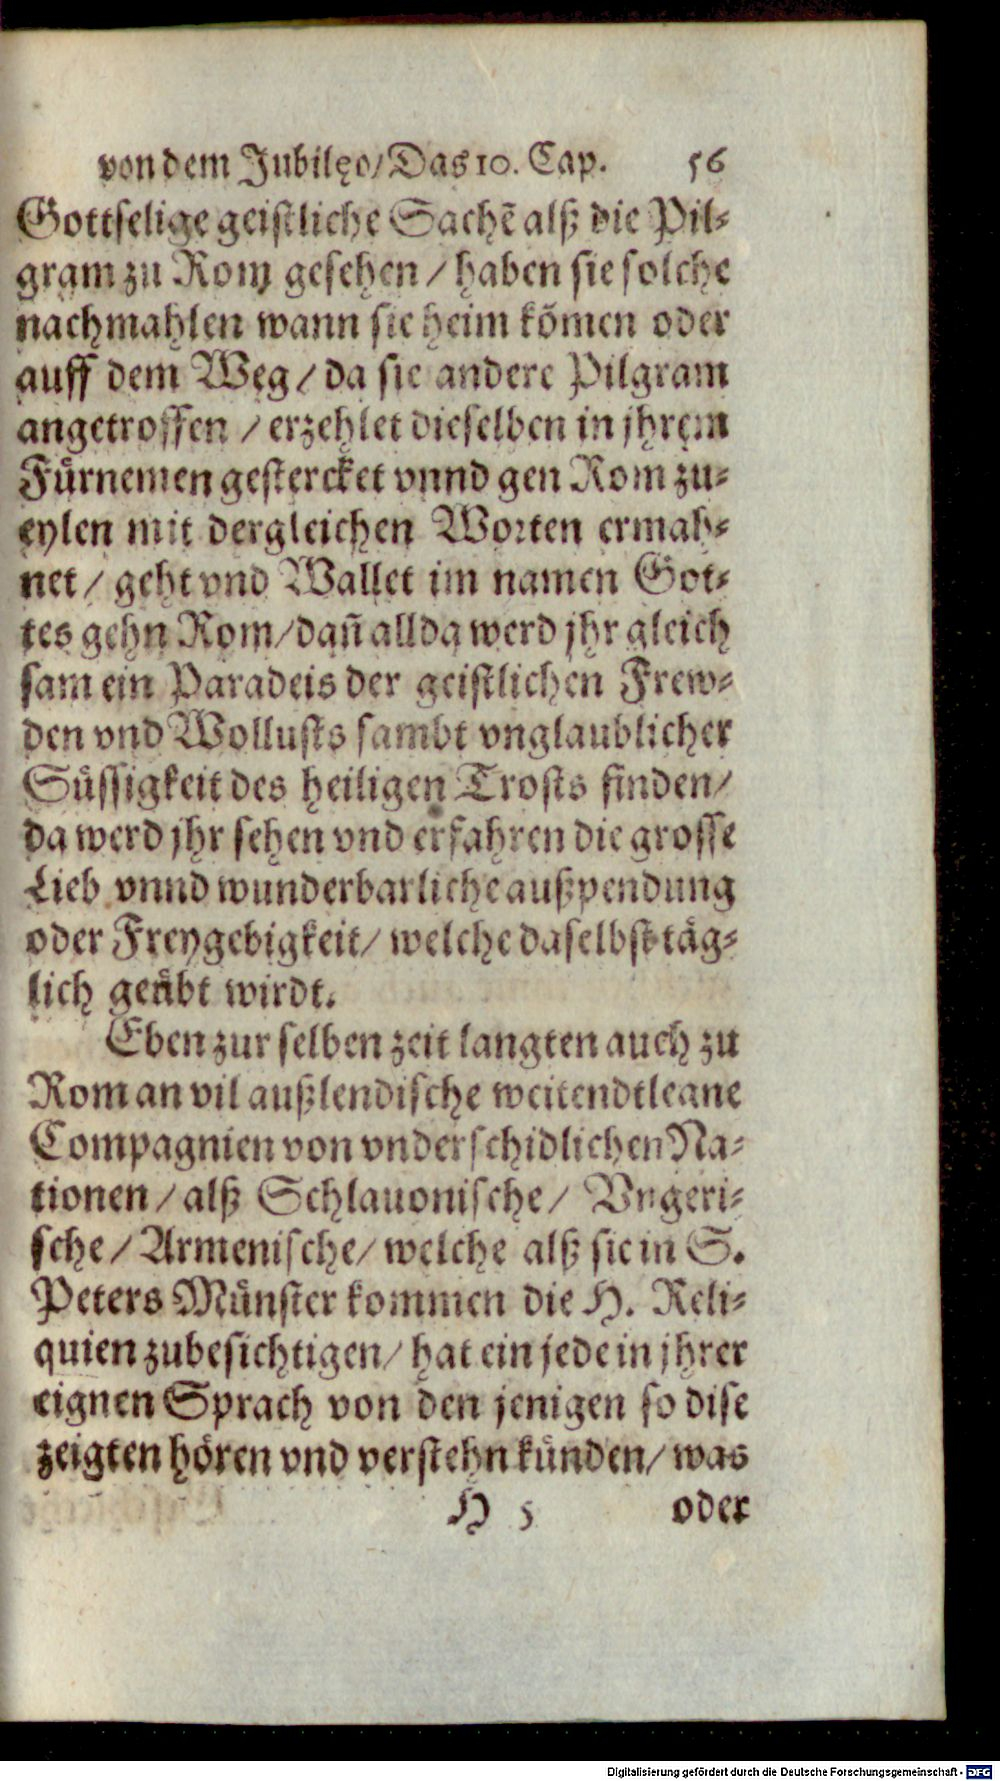 von dem Jubilęo/ Das 10. Cap. 56
Gottselige geistliche Sachē alß die Pil-
gram zu Rom gesehen / haben sie solche
nachmahlen wann sie heim kōmen oder
auff dem Weg / da sie andere Pilgram
angetroffen / erzehlet dieselben in jhrem
Fürnemen gestercket vnnd gen Rom zu-
eylen mit dergleichen Worten ermah-
net / geht vnd Wallet im namen Got-
tes gehn Rom/ dañ allda werd jhr gleich
sam ein Paradeis der geistlichen Frew-
den vnd Wollusts sambt vnglaublicher
Süssigkeit des heiligen Trosts finden/
da werd jhr sehen vnd erfahren die grosse
Lieb vnnd wunderbarliche außpendung
oder Freygebigkeit/ welche daselbst täg-
lich geübt wirdt.
Eben zur selben zeit langten auch zu
Rom an vil außlendische weitendtleane
Compagnien von vnderschidlichen Na-
tionen / alß Schlauonische/ Vngeri-
sche / Armenische/ welche alß sie in S.
Peters Münster kommen die H. Reli-
quien zubesichtigen/ hat ein jede in jhrer
eignen Sprach von den jenigen so dise
zeigten hören vnd verstehn künden/ was
H 5 oder
Digitalisierung gefördert durch die Deutsche Forschungsgemeinschaft - DFG